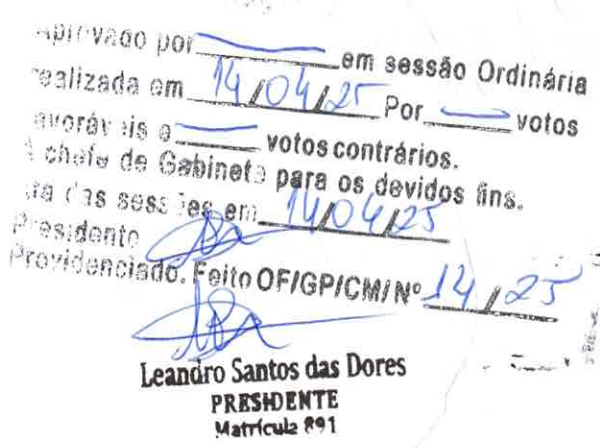 Aprovado por ______ em sessão Ordinária
realizada em 14/04/25 Por ____ votos
favoráveis e ____ votos contrários.
A chefe de Gabinete para os devidos fins.
Sala das sessões em 14/04/25
Presidente
Providenciado. Feito OF/GP/CM/Nº 14/25
Leandro Santos das Dores
PRESIDENTE
Matrícula 891